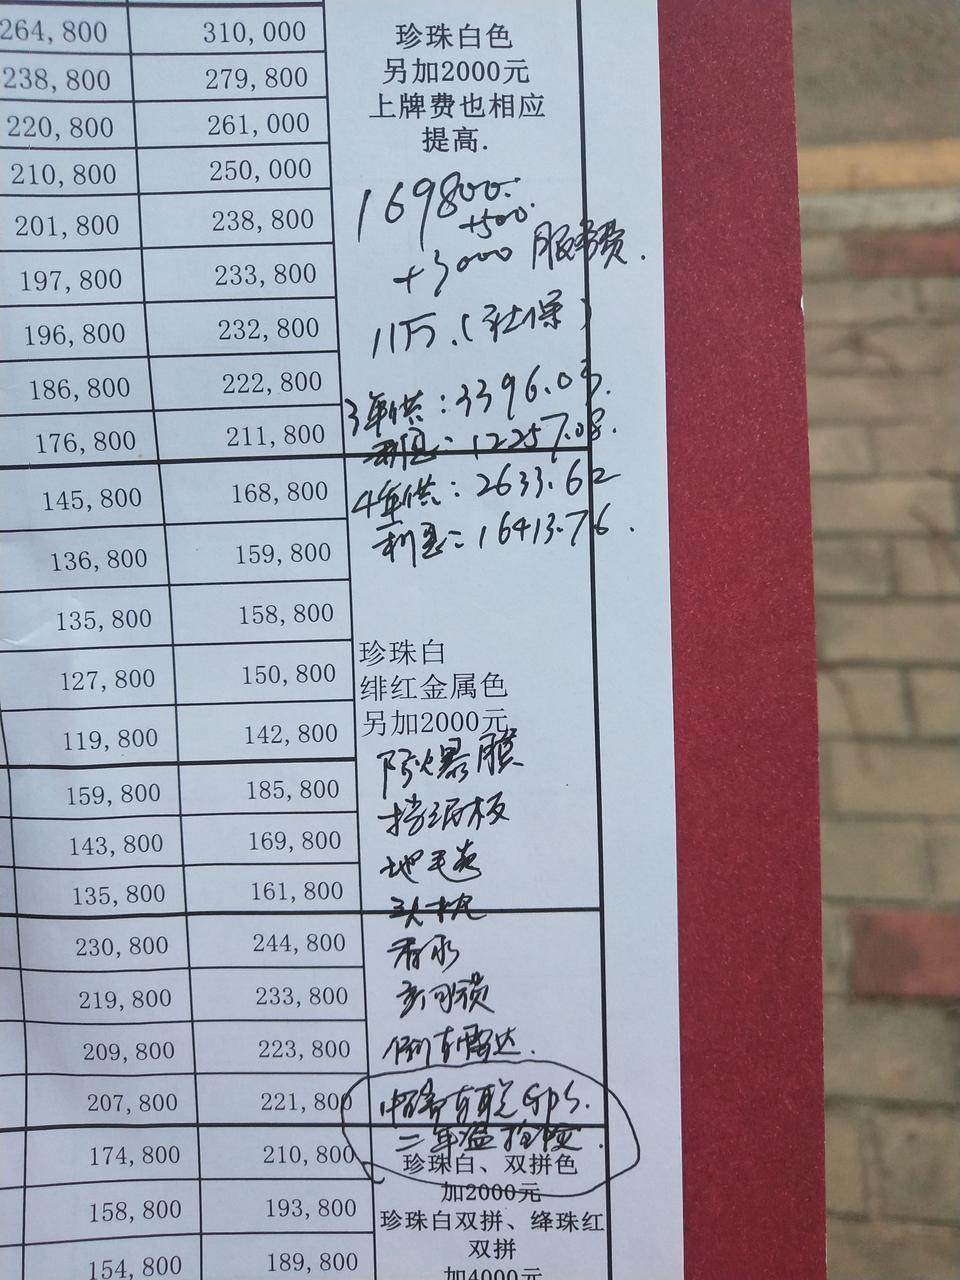 264,800 310,000 珍珠白色
238,800 279,800 另加2000元
220,800 261,000 上牌费也相应
提高.
210,800 250,000
169800.
201,800 238,800 +500.
+3000 服务费.
197,800 233,800
196,800 232,800 11万.(社保)
186,800 222,800 3年供:3396.03.
176,800 211,800 利息:12257.08.
145,800 168,800 4年供:2633.62
136,800 159,800 利息:16413.76.
135,800 158,800
127,800 150,800 珍珠白
绯红金属色
119,800 142,800 另加2000元
防爆膜
159,800 185,800 挡泥板
143,800 169,800 地毛毯
135,800 161,800 头枕
230,800 244,800 香水
219,800 233,800 锁
209,800 223,800 倒车雷达.
207,800 221,800 车联GPS.
二年盗抢险.
174,800 210,800 珍珠白、双拼色
加2000元
158,800 193,800 珍珠白双拼、绛珠红
双拼
154,800 189,800 加4000元